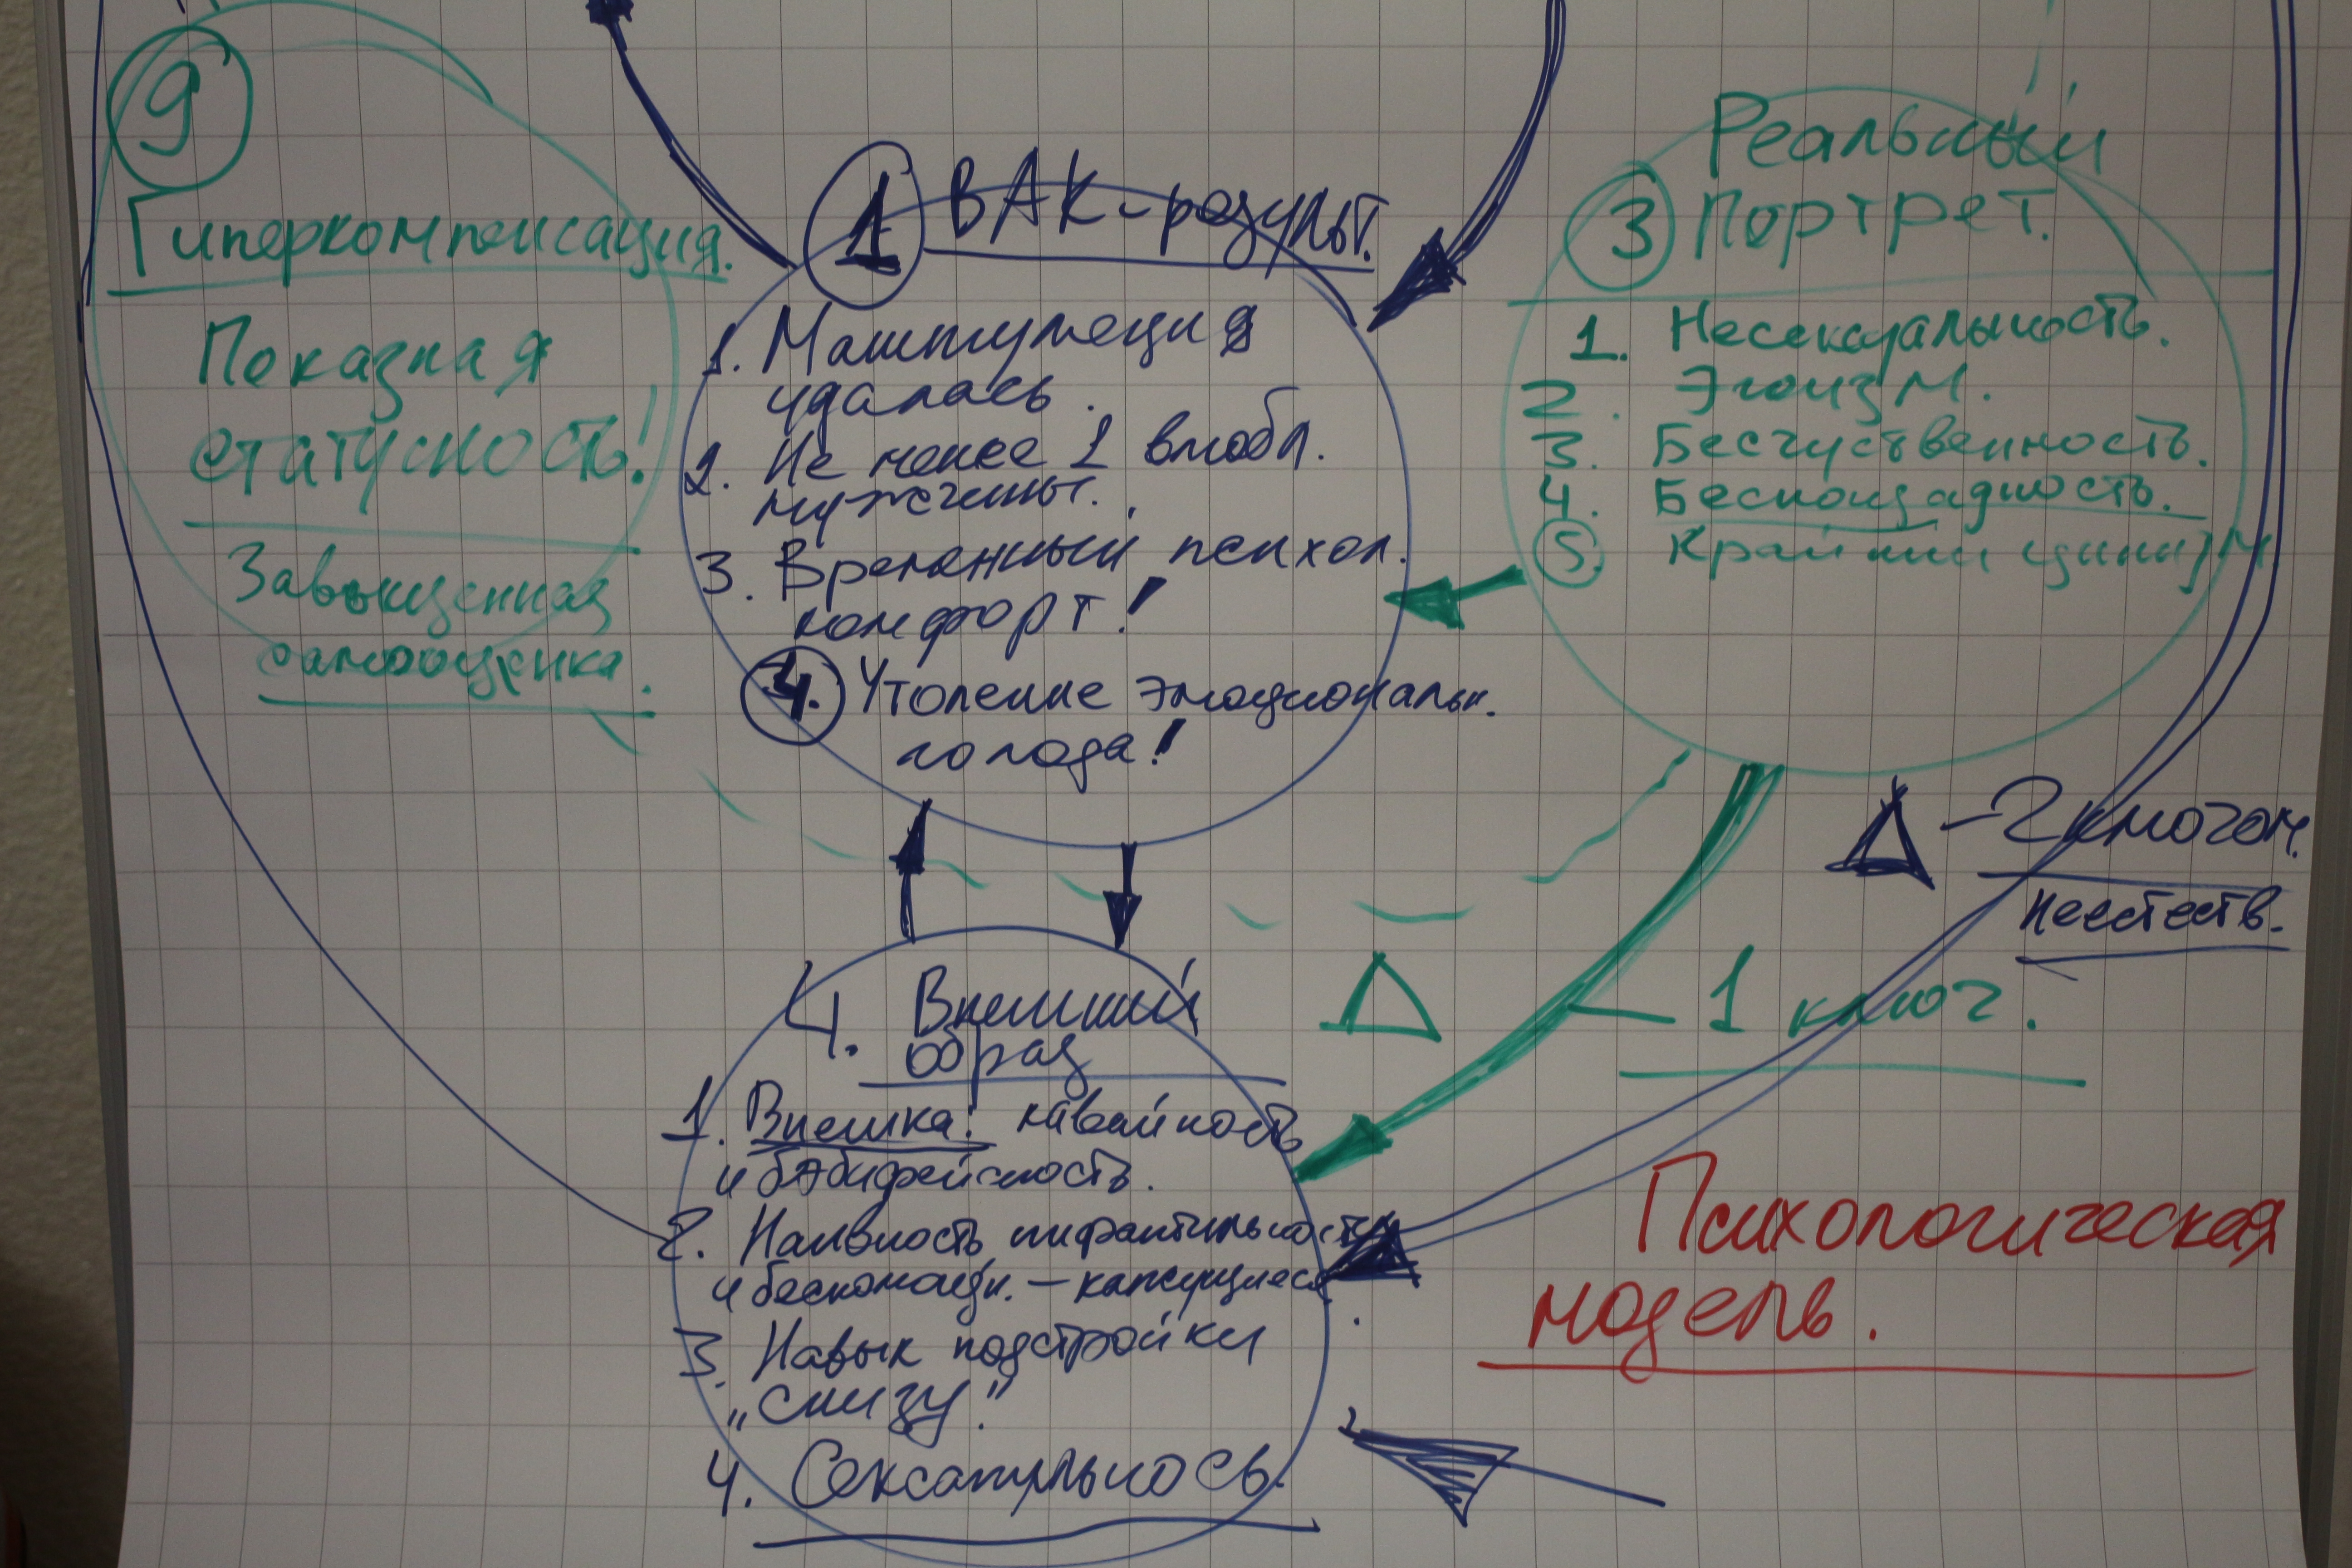 9
Гиперкомпенсация.
Показная
статусность!
Завышенная
самооценка.
1 ВАК-результ.
1. Манипуляция
удалась.
2. Не менее 1 влюбл.
мужчины.
3. Временный психол.
комфорт!
4. Утоление эмоциональн.
голода!
Реальный
3 Портрет.
1. Несексуальность.
2. Эгоизм.
3. Бесчуственность.
4. Беспощадность.
5. Крайний цинизм
Δ - 2 ключом.
неестеств.
Δ - 1 ключ.
4. Внешний
образ
1. Внешка: кавайность
и бэбифейсность.
2. Наивность инфантильность
и беспомощн. - кажущиеся.
3. Навык подстройки
„снизу".
4. Сексапильнось.
Психологическая
модель.